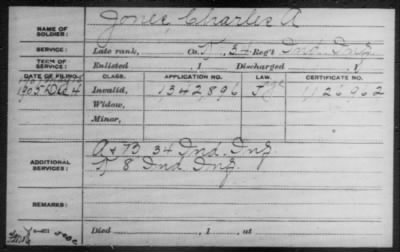 Jones, Charles A
NAME OF SOLDIER:
SERVICE: Late rank, Co. K, 34 Reg't Ind. Inf.
TERM OF SERVICE: Enlisted , 1 Discharged , 1
DATE OF FILING. CLASS. APPLICATION NO. LAW. CERTIFICATE NO.
1905 Dec 4 Invalid, 1342896 1126962
Widow,
Minor,
ADDITIONAL SERVICES: A & B 34 Ind. Inf.
K 8 Ind Inf.
REMARKS:
Died , 1 , at